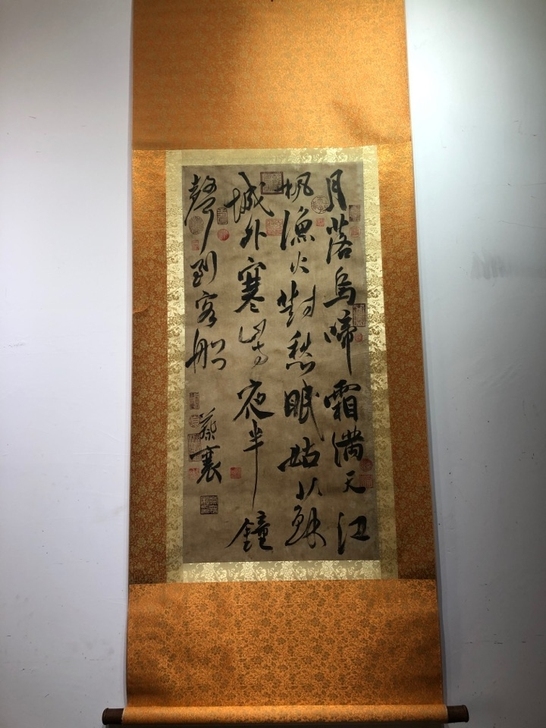 月落烏啼霜滿天江
楓漁火對愁眠姑蘇
城外寒山寺夜半鐘
聲到客船
蔡襄